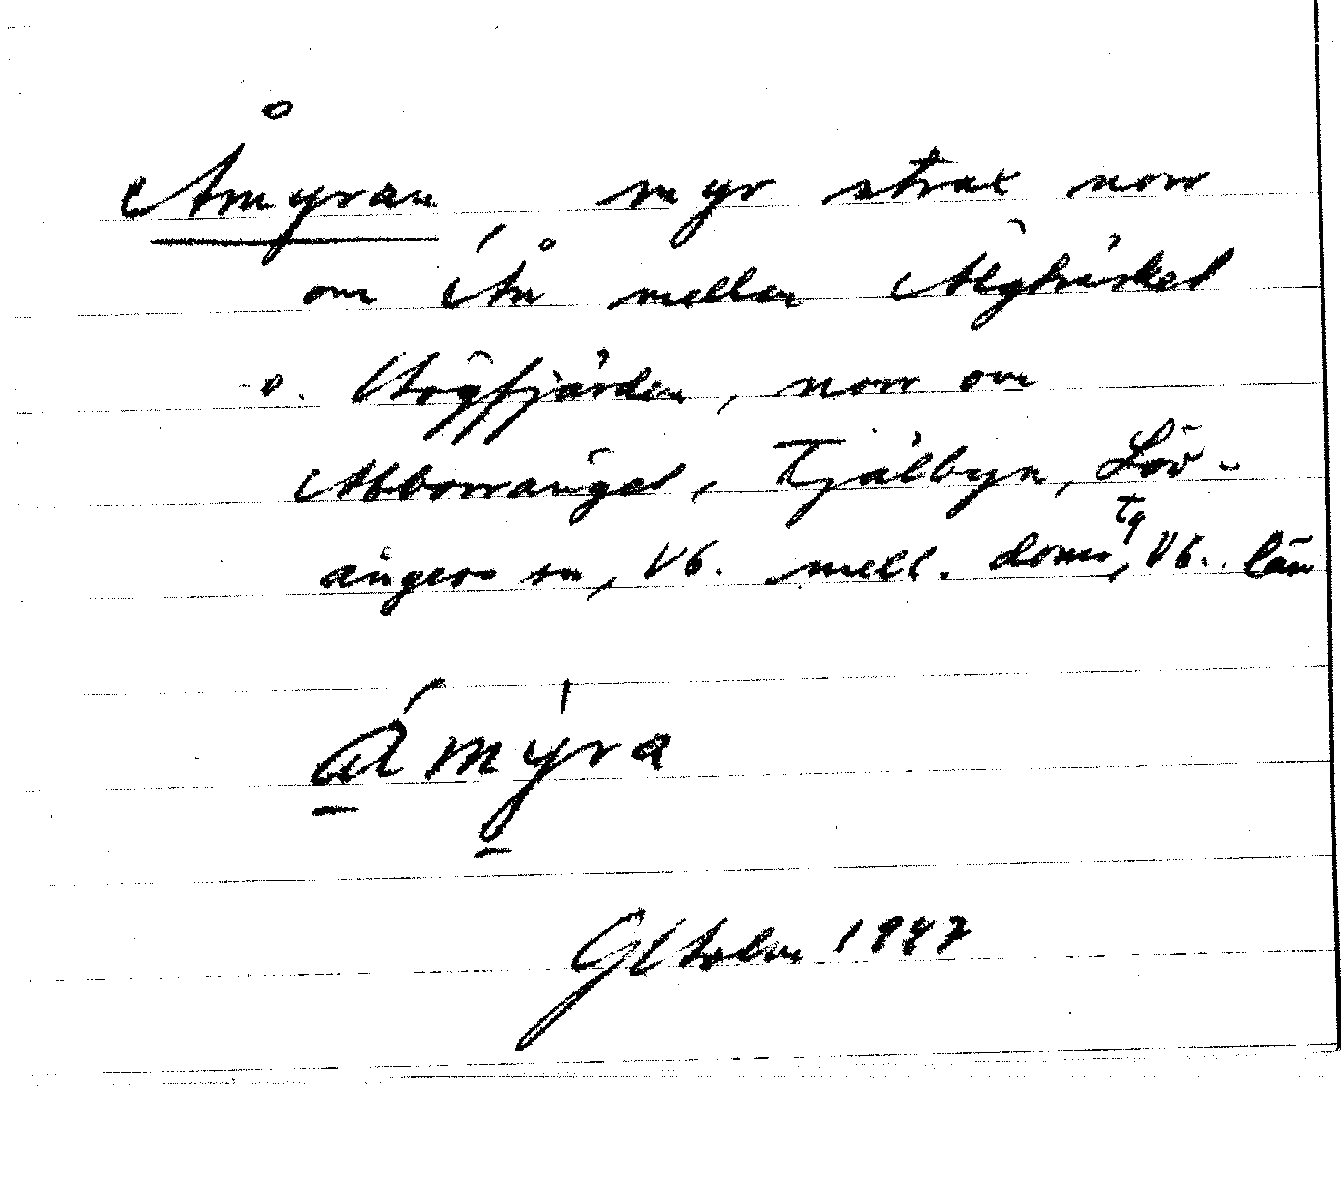 Åmyran, myr strax norr
om Ån mellan Älgträsket
o. Högfjärden, norr om
Abborränget, Tjälbyn, Löv-
ångers sn, Vb. mell. doms
tg, Vb. län
Åmýra
GHolm 1947